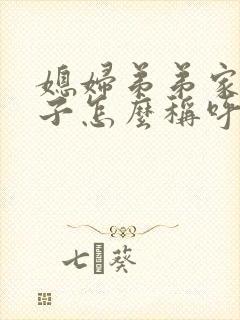 媳婦弟弟家
子怎麼稱呼
七葵